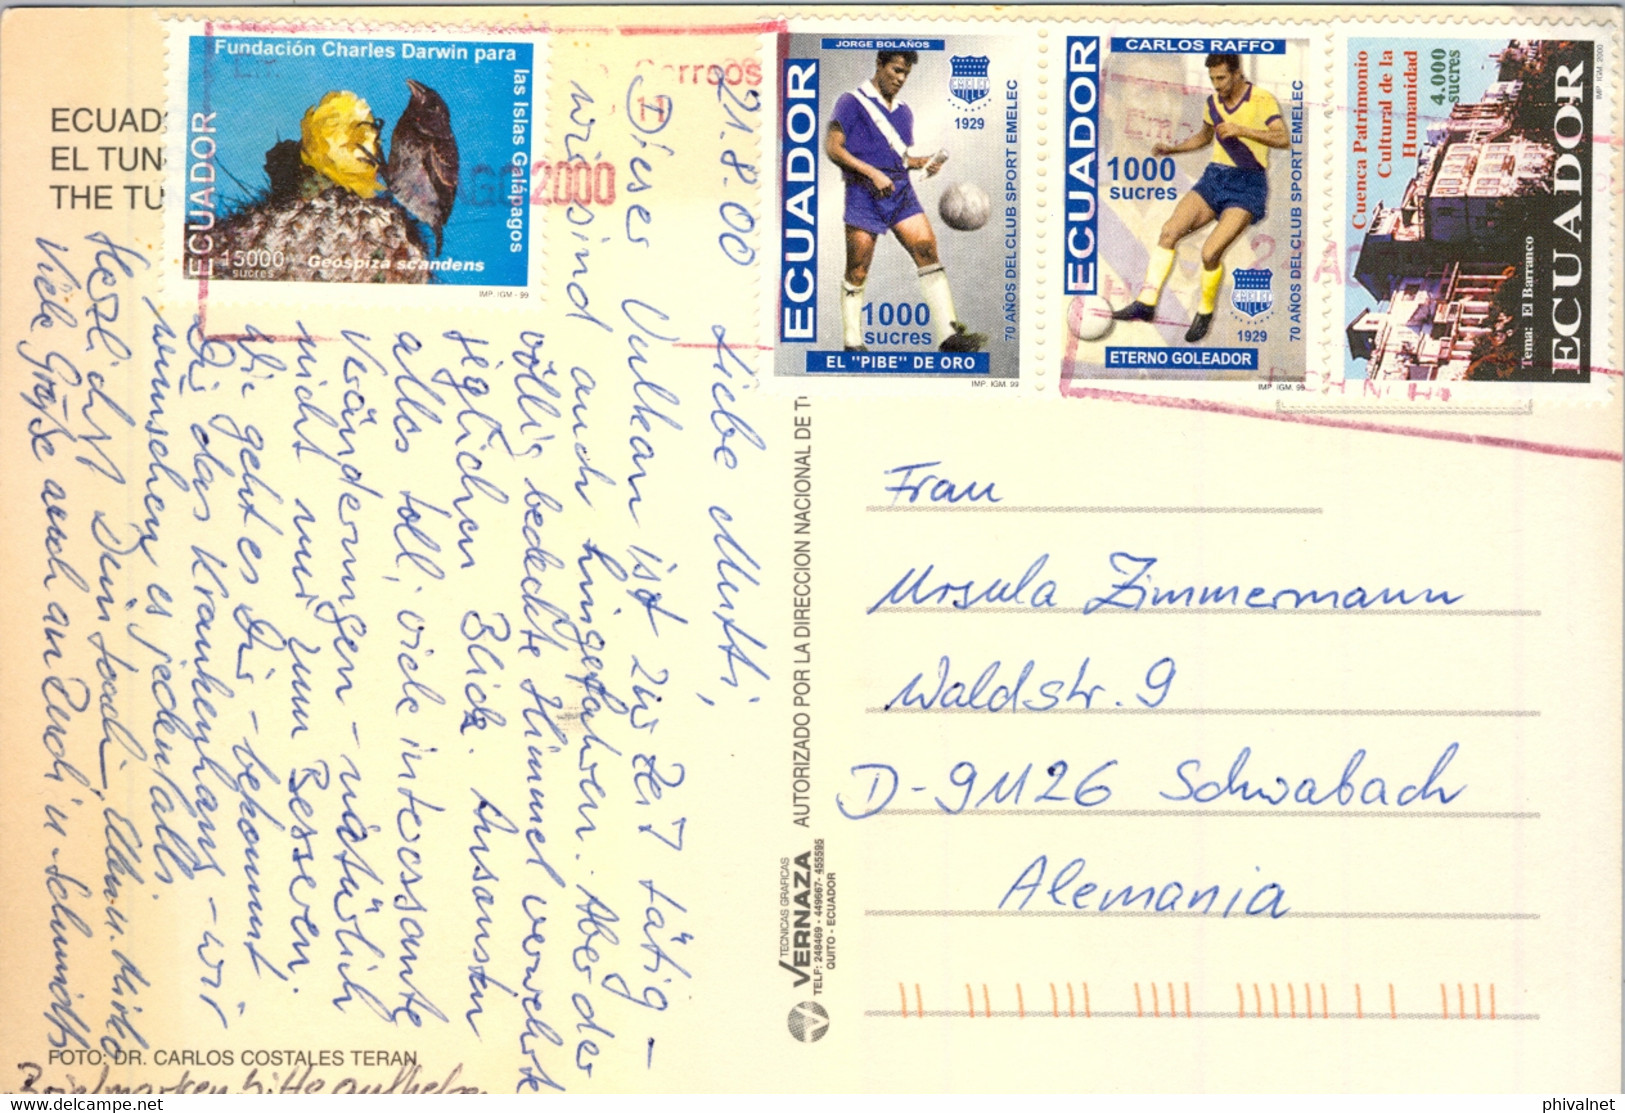 ECUAD
EL TUN
THE TU
Fundación Charles Darwin para
las Islas Galápagos
ECUADOR
15000
sucres
Geospiza scandens
IMP. IGM - 99
Correos
AGO 2000
JORGE BOLAÑOS
ECUADOR
EMELEC
1929
70 AÑOS DEL CLUB SPORT EMELEC
1000
sucres
EL "PIBE" DE ORO
IMP. IGM. 99
CARLOS RAFFO
ECUADOR
1000
sucres
70 AÑOS DEL CLUB SPORT EMELEC
EMELEC
1929
ETERNO GOLEADOR
IMP. IGM. 99
Cuenca Patrimonio
Cultural de la
Humanidad
4.000
sucres
Tema: El Barranco
ECUADOR
IMP. IGM. 2000
21.8.00
Liebe Mutti,
Dieser Vulkan ist zur Zeit tätig -
wir sind auch hingefahren. Aber der
völlig bedeckte Himmel verwehrte
jeglichen Blick. Ansonsten
alles toll, viele interessante
Veränderungen - natürlich
nicht nur zum Besseren.
Wie geht es Dir - bekommt
Dir das Krankenhaus - wir
wünschen es jedenfalls.
Herzlichst Dein
Viele Grüße auch an Rudi u. Schmidts
Briefmarken bitte aufheben
FOTO: DR. CARLOS COSTALES TERAN
AUTORIZADO POR LA DIRECCION NACIONAL DE T
TECNICAS GRAFICAS
VERNAZA
TELF: 248469 - 449667- 455595
QUITO - ECUADOR
Frau
Ursula Zimmermann
Waldstr. 9
D-91126 Schwabach
Alemania
phivalnet